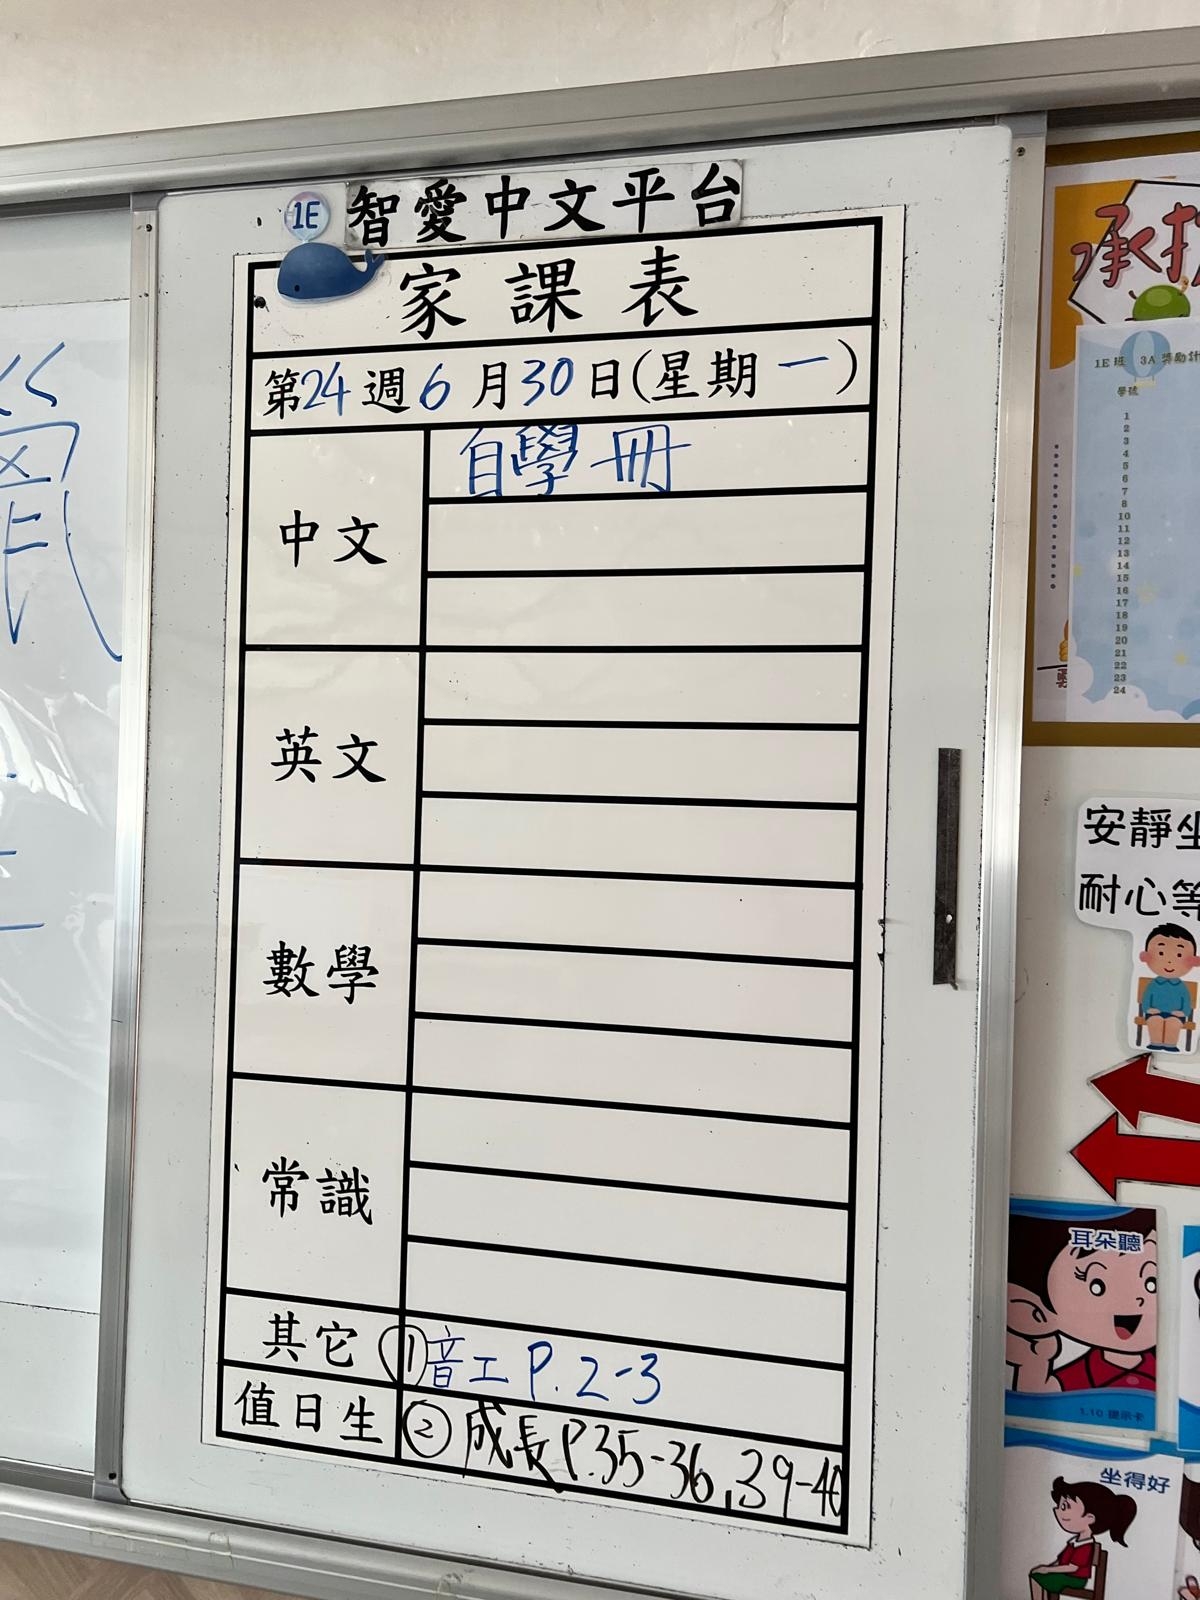 1E
智愛中文平台
家課表
第24週6月30日(星期一)
中文
自學冊
英文
數學
常識
其它
①音工 P.2-3
值日生
②成長 P.35-36,39-40
1E 班 3A 獎勵計
學號
1
2
3
4
5
6
7
8
10
11
12
13
14
15
16
17
18
19
20
21
22
23
24
安靜坐
耐心等
耳朵聽
1.10 提示卡
坐得好